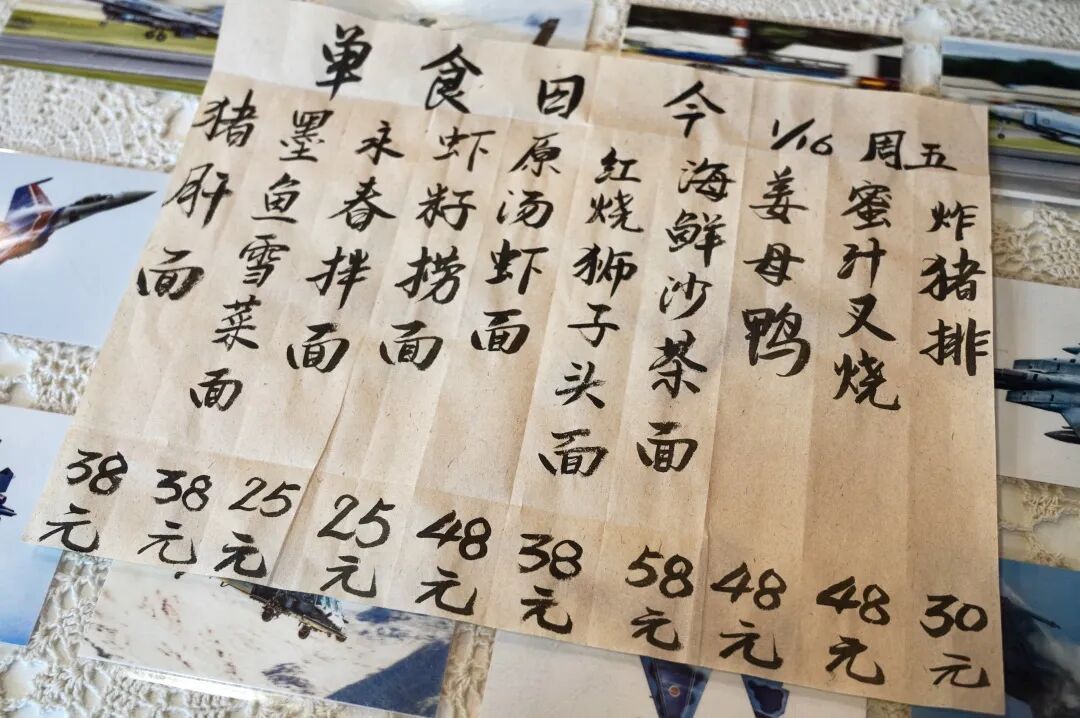 今日食单
1/16 周五
炸猪排 30元
蜜汁叉烧 48元
姜母鸭 48元
海鲜沙茶面 58元
红烧狮子头面 38元
原汤虾面 48元
虾籽捞面 25元
永春拌面 25元
墨鱼雪菜面 38元
猪肝面 38元